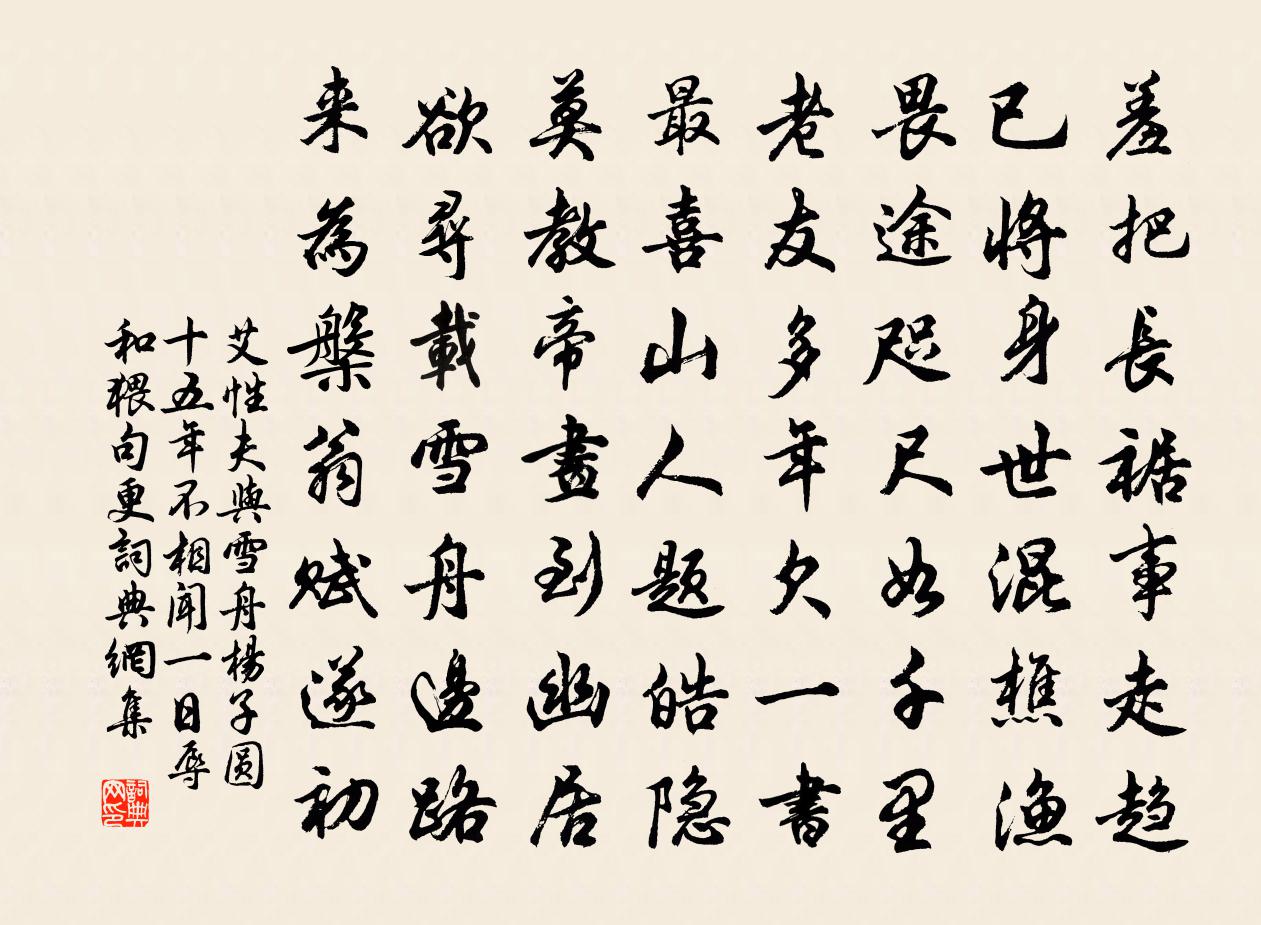 羞把長裾事走趋
已將身世混樵漁
畏途咫尺如千里
老友多年欠一書
最喜山人題皓隐
莫教帝畫到幽居
欲尋載雪舟邊路
来為槃翁赋遂初
艾性夫與雪舟楊子圆
十五年不相聞一日辱
和猥句更詞典網集
詞典
网印